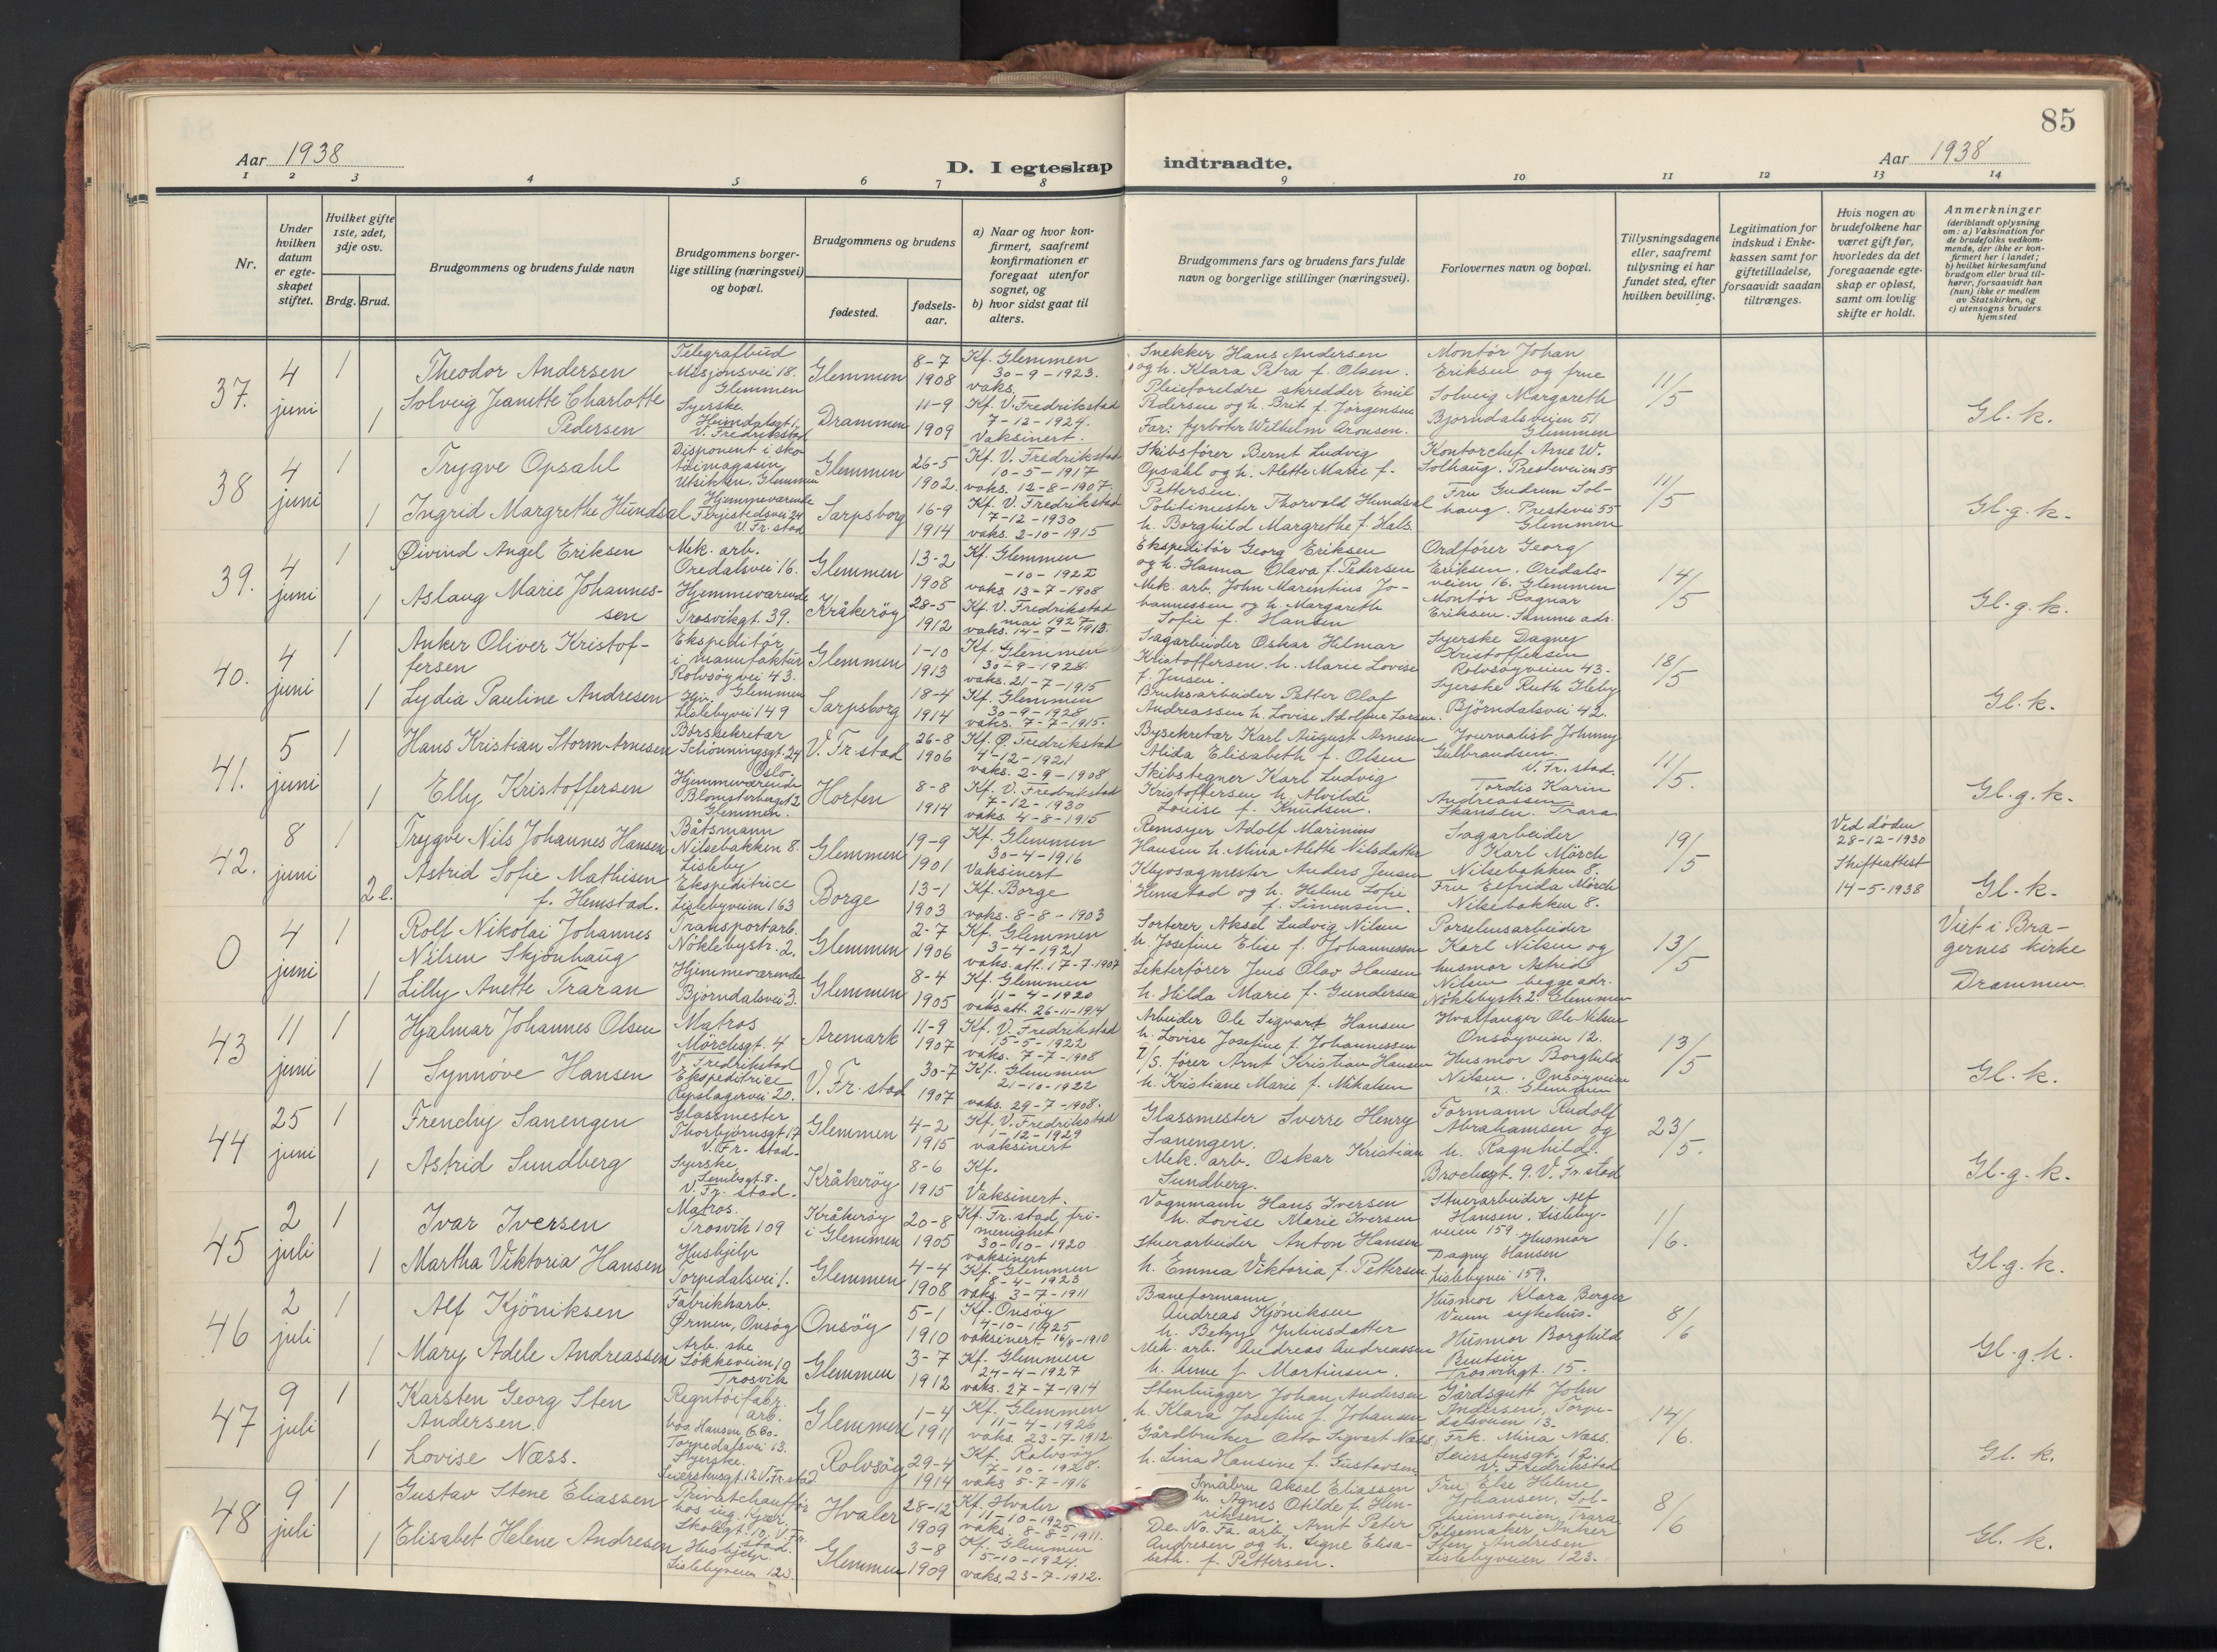 85
Aar 1938
D. I egteskap indtraadte.
Aar 1938
1 2 3 4 5 6 7 8 9 10 11 12 13 14
Nr.
Under hvilken datum er egteskapet stiftet.
Hvilket gifte 1ste, 2det, 3dje osv.
Brdg. Brud.
Brudgommens og brudens fulde navn
Brudgommens borgerlige stilling (næringsvei) og bopæl.
Brudgommens og brudens
fødested.
fødselsaar.
a) Naar og hvor konfirmert, saafremt konfirmationen er foregaat utenfor sognet, og
b) hvor sidst gaat til alters.
Brudgommens fars og brudens fars fulde navn og borgerlige stillinger (næringsvei).
Forlovernes navn og bopæl.
Tillysningsdagene eller, saafremt tillysning ei har fundet sted, efter hvilken bevilling.
Legitimation for indskud i Enkekassen samt for giftetilladelse, forsaavidt saadan tiltrænges.
Hvis nogen av brudefolkene har været gift før, hvorledes da det foregaaende egteskap er opløst, samt om lovlig skifte er holdt.
Anmerkninger
(deriblandt oplysning om: a) Vaksination for de brudefolks vedkommende, der ikke er konfirmert her i landet; b) hvilket kirkesamfund brudgom eller brud tilhører, forsaavidt han (hun) ikke er medlem av Statskirken, og c) utensogns bruders hjemsted
37. 4 juni 1
Theodor Andersen
Telegrafbud
Misjonsvei 18.
Glemmen
Glemmen 8-7 1908
Kf. Glemmen
30-9-1923.
vaks.
Snekker Hans Andersen
og h. Klara Petra f. Olsen.
Montör Johan
Eriksen og frue
Solveig Margareth
Bjorndalsveien 51
Glemmen
11/5
Gl. k.
1 Solveig Jeanette Charlotte
Pedersen
Syerske.
Heimdalsgt 1.
V. Fredrikstad
Drammen 11-9 1909
Kf. V. Fredrikstad
7-12-1924.
Vaksinert.
Pleieforeldre skredder Emil
Pedersen og h. Brit f. Jørgensen
Far: fyrböter Wilhelm Aronsen.
38 4 juni 1
Trygve Opsahl
Disponent i sko-
töimagasin
Glemmen
Glemmen 26-5 1902.
Kf. V. Fredrikstad
10-5-1917
vaks. 12-8-1907.
Skibsförer Bernt Ludvig
Opsahl og h. Alette Marie f.
Pettersen.
Kontorchef Arne W.
Solhaug. Presteveien 55
Fru Gudrun Sol-
haug. Prestevei 55
Glemmen
11/5
Gl. g. k.
1 Ingrid Margrethe Hundsal
Hjemmeværende
Ferjestedsvei 24
V. Fr. stad
Sarpsborg 16-9 1914
Kf. V. Fredrikstad
7-12-1930
vaks. 2-10-1915
Politimester Thorvald Hundsal
h. Borghild Margrethe f. Hals.
39. 4 juni 1
Øivind Angel Eriksen
Mek. arb.
Oredalsvei 16.
Glemmen 13-2 1908
Kf. Glemmen
-10-1922
vaks 13-7-1908
Ekspeditör Georg Eriksen
og h. Hanna Olava f. Pedersen
Ordförer Georg
Eriksen. Oredals-
veien 16. Glemmen
Montör Ragnar
Eriksen. Samme adr.
14/5
Gl. g. k.
1 Aslaug Marie Johannes-
sen
Hjemmeværende
Trosvikgt. 39.
Kråkeröy 28-5 1912
Kf. V. Fredrikstad
mai 1927
vaks. 14-7-1913.
Mek. arb. John Marentius Jo-
hannessen og h. Margareth
Sofie f. Hansen
40. 4 juni 1
Anker Oliver Kristof-
fersen
Ekspeditör
i manufaktur
Rolvsöyvei 43.
Glemmen
Glemmen 1-10 1913
Kf. Glemmen
30-9-1928.
vaks. 21-7-1915
Sagarbeider Oskar Hilmar
Kristoffersen. h. Marie Lovise
f. Jensen.
Syerske Dagny
Kristoffersen
Rolvsöyveien 43.
Syerske Ruth Gleby
Björndalsvei 42.
18/5
Gl. k.
1 Lydia Pauline Andresen
Hjv.
Lislebyvei 149
Sarpsborg 18-4 1914
Kf. Glemmen
30-9-1928
vaks. 7-7-1915.
Bruksarbeider Petter Olaf
Andreassen h. Lovise Adolfine Larsen.
41. 5 juni 1
Hans Kristian Storm-Arnesen
Börssekretær
Schönningsgt. 24
Oslo.
V. Fr. stad 26-8 1906
Kf. Ø. Fredrikstad
4-12-1921
vaks. 2-9-1908
Bysekretær Karl August Arnesen
Alida Elisabeth f. Olsen
Journalist Johnny
Gulbrandsen.
V. Fr. stad.
Tordis Karin
Andreassen
Skansen. Trara
11/5.
Gl. g. k.
1 Elly Kristoffersen
Hjemmeværende
Blomsterberget 2
Glemmen.
Horten 8-8 1914
Kf. V. Fredrikstad
7-12-1930
vaks. 4-8-1915
Skibstegner Karl Ludvig
Kristoffersen h. Alvilde
Louise f. Knudsen.
42. 8 juni 1
Trygve Nils Johannes Hansen
Båtsmann
Nilsebakken 8.
Lisleby
Glemmen 19-9 1901
Kf. Glemmen
30-4-1916
Vaksinert
Remsyer Adolf Marinius
Hansen h. Mina Alette Nilsdatter
Sagarbeider
Karl Mörch
Nilsebakken 8.
Fru Elfrida Mörch
Nilsebakken 8.
19/5
Ved döden
28-12-1930
Skifteattest
14-5-1938
Gl. k.
2 e. Astrid Sofie Mathisen
f. Hemstad.
Ekspeditrice
Lislebyveien 163
Borge 13-1 1903
Kf. Borge
vaks. 8-8-1903
Kljosagmester Anders Jensen
Hemstad og h. Helene Sofie
f. Simensen.
0 4 juni 1
Rolf Nikolai Johannes
Nilsen Skjönhaug
Transportarb.
Nöklebystr. 2.
Glemmen 2-7 1906
Kf. Glemmen
3-4-1921
vaks. att. 17-7-1907
Sorterer, Aksel Ludvig Nilsen
h. Josefine Elise f. Johannessen
Porselensarbeider
Karl Nilsen og
husmor Astrid
Nilsen begge adr.
Nöklebystr. 2. Glemmen
13/5
Viet i Bra-
gernes kirke
Drammen.
1 Lilly Anette Traran
Hjemmeværende
Björndalsvei 3.
Glemmen 8-4 1905
Kf. Glemmen
11-4-1920
vaks. att. 26-11-1914
Lekterförer Jens Olav Hansen
h. Hilda Marie f. Gundersen
43 11 juni 1
Hjalmar Johannes Olsen
Matros
Mörchsgt. 4
V. Fredrikstad
Aremark 11-9 1907
Kf. V. Fredrikstad
15-5-1922
vaks. 7-7-1908
Arbeider Ole Sigvart Hansen
h. Lovise Josefine f. Johannessen
Hvalfanger Ole Nilsen
Onsöyveien 12.
Husmor Borghild
Nilsen. Onsöyveien
12. Glemmen
13/5
Gl. k.
1 Synnöve Hansen
Ekspeditrice
Repslagervei 20.
V. Fr. stad 30-7 1907
Kf. Glemmen
21-10-1922
vaks. 29-7-1908.
förer Arnt Kristian Hansen
h. Kristiane Marie f. Mikalsen
44 25 juni 1
Frenchy Sanengen
Glassmester
Thorbjörnsgt 17
V. Fr. stad.
Glemmen 4-2 1915
Kf. V. Fredrikstad
1-12-1929
vaksinert
Glassmester Sverre Henry
Sanengen.
Formann Rudolf
Abrahamsen og
h. Ragnhild.
Brochsgt. 9. V. Fr. stad
23/5.
Gl. g. k.
1 Astrid Sundberg
Syerske
V. Fr. stad.
Kråkeröy 8-6 1915
Kf.
Vaksinert.
Mek. arb. Oskar Kristian
Sundberg.
45 2 juli 1
Ivar Iversen
Matros.
Trosvik 109
Kråkeröy
i Glemmen 20-8 1905
Kf. Fr. stad fri-
menighet
30-10-1920
vaksinert
Vognmann Hans Iversen
h. Lovise Marie Iversen
Stuerarbeider Alf
Hansen. Lisleby-
veien 159. Husmor
Dagny Hansen
Lislebyvei 159.
1/6.
Gl. g. k.
1 Martha Viktoria Hansen
Hushjelp
Torpedalsvei 1.
Glemmen 4-4 1908
Kf. Glemmen
8-4-1923
vaks. 3-7-1911
Stuerarbeider Anton Hansen
h. Emma Viktoria f. Pettersen.
46 2 juli 1
Alf Kjöniksen
Fabrikharb.
Ørmen, Onsöy
Onsöy 5-1 1910
Kf. Onsöy
4-10-1925
vaksinert 16/8-1910
Baneformann
Andreas Kjöniksen
h. Betzy Juliusdatter
Husmor Klara Berger
Veum sykehus.
Husmor Borghild
Trosvikgt. 15.
8/6
Gl. g. k.
1 Mary Adele Andreassen
Arb. ske
Lökkeveien 19
Trosvik
Glemmen 3-7 1912
Kf. Glemmen
24-4-1927
vaks. 27-7-1914
Mek. arb. Andreas Andreassen
h. Anne f. Martinsen.
47 9 juli 1
Karsten Georg Sten
Andersen.
Regntöifabr.
arb.
hos Hansen & Co.
Torpedalsvei 13.
Glemmen 1-4 1911
Kf. Glemmen
11-4-1926
vaks. 23-7-1912.
Stenhugger Johan Andersen
h. Klara Josefine f. Johansen
Gårdsgutt John
Andersen, Torpe-
dalsveien 13.
Frk. Mina Næss.
Seierstensgt. 12.
V. Fredrikstad
14/6.
Gl. k.
1 Lovise Næss.
Syerske.
Seierstensgt. 12 V. Fr. stad
Rolvsöy 29-4 1914
Kf. Rolvsöy
7-10-1928.
vaks 5-7-1916
Gårdbruker Otto Sigvart Næss
h. Lina Hansine f. Gustavsen
48 9 juli 1
Gustav Stene Eliassen
Privatchaufför
hos ing. Kjær.
Skolegt. 10. V. Fr.
stad.
Hvaler 28-12 1909
Kf. Hvaler
11-10-1925
vaks. 8-8-1911.
Småbru Aksel Eliassen
h. Agnes Otilde f. Hen-
riksen.
Fru Else Helene
Johansen, Sol-
heimsveien, Trara
Pölsemaker Anker
Sten Andresen
Lislebyveien 123.
8/6
Gl. k.
1 Elisabet Helene Andresen
Hushjelp
Lislebyveien 123.
Glemmen 3-8 1909
Kf. Glemmen
5-10-1924.
vaks. 23-7-1912.
De. No. Fa. arb. Arnt Peter
Andresen og h. Signe Elisa-
beth f. Pettersen.